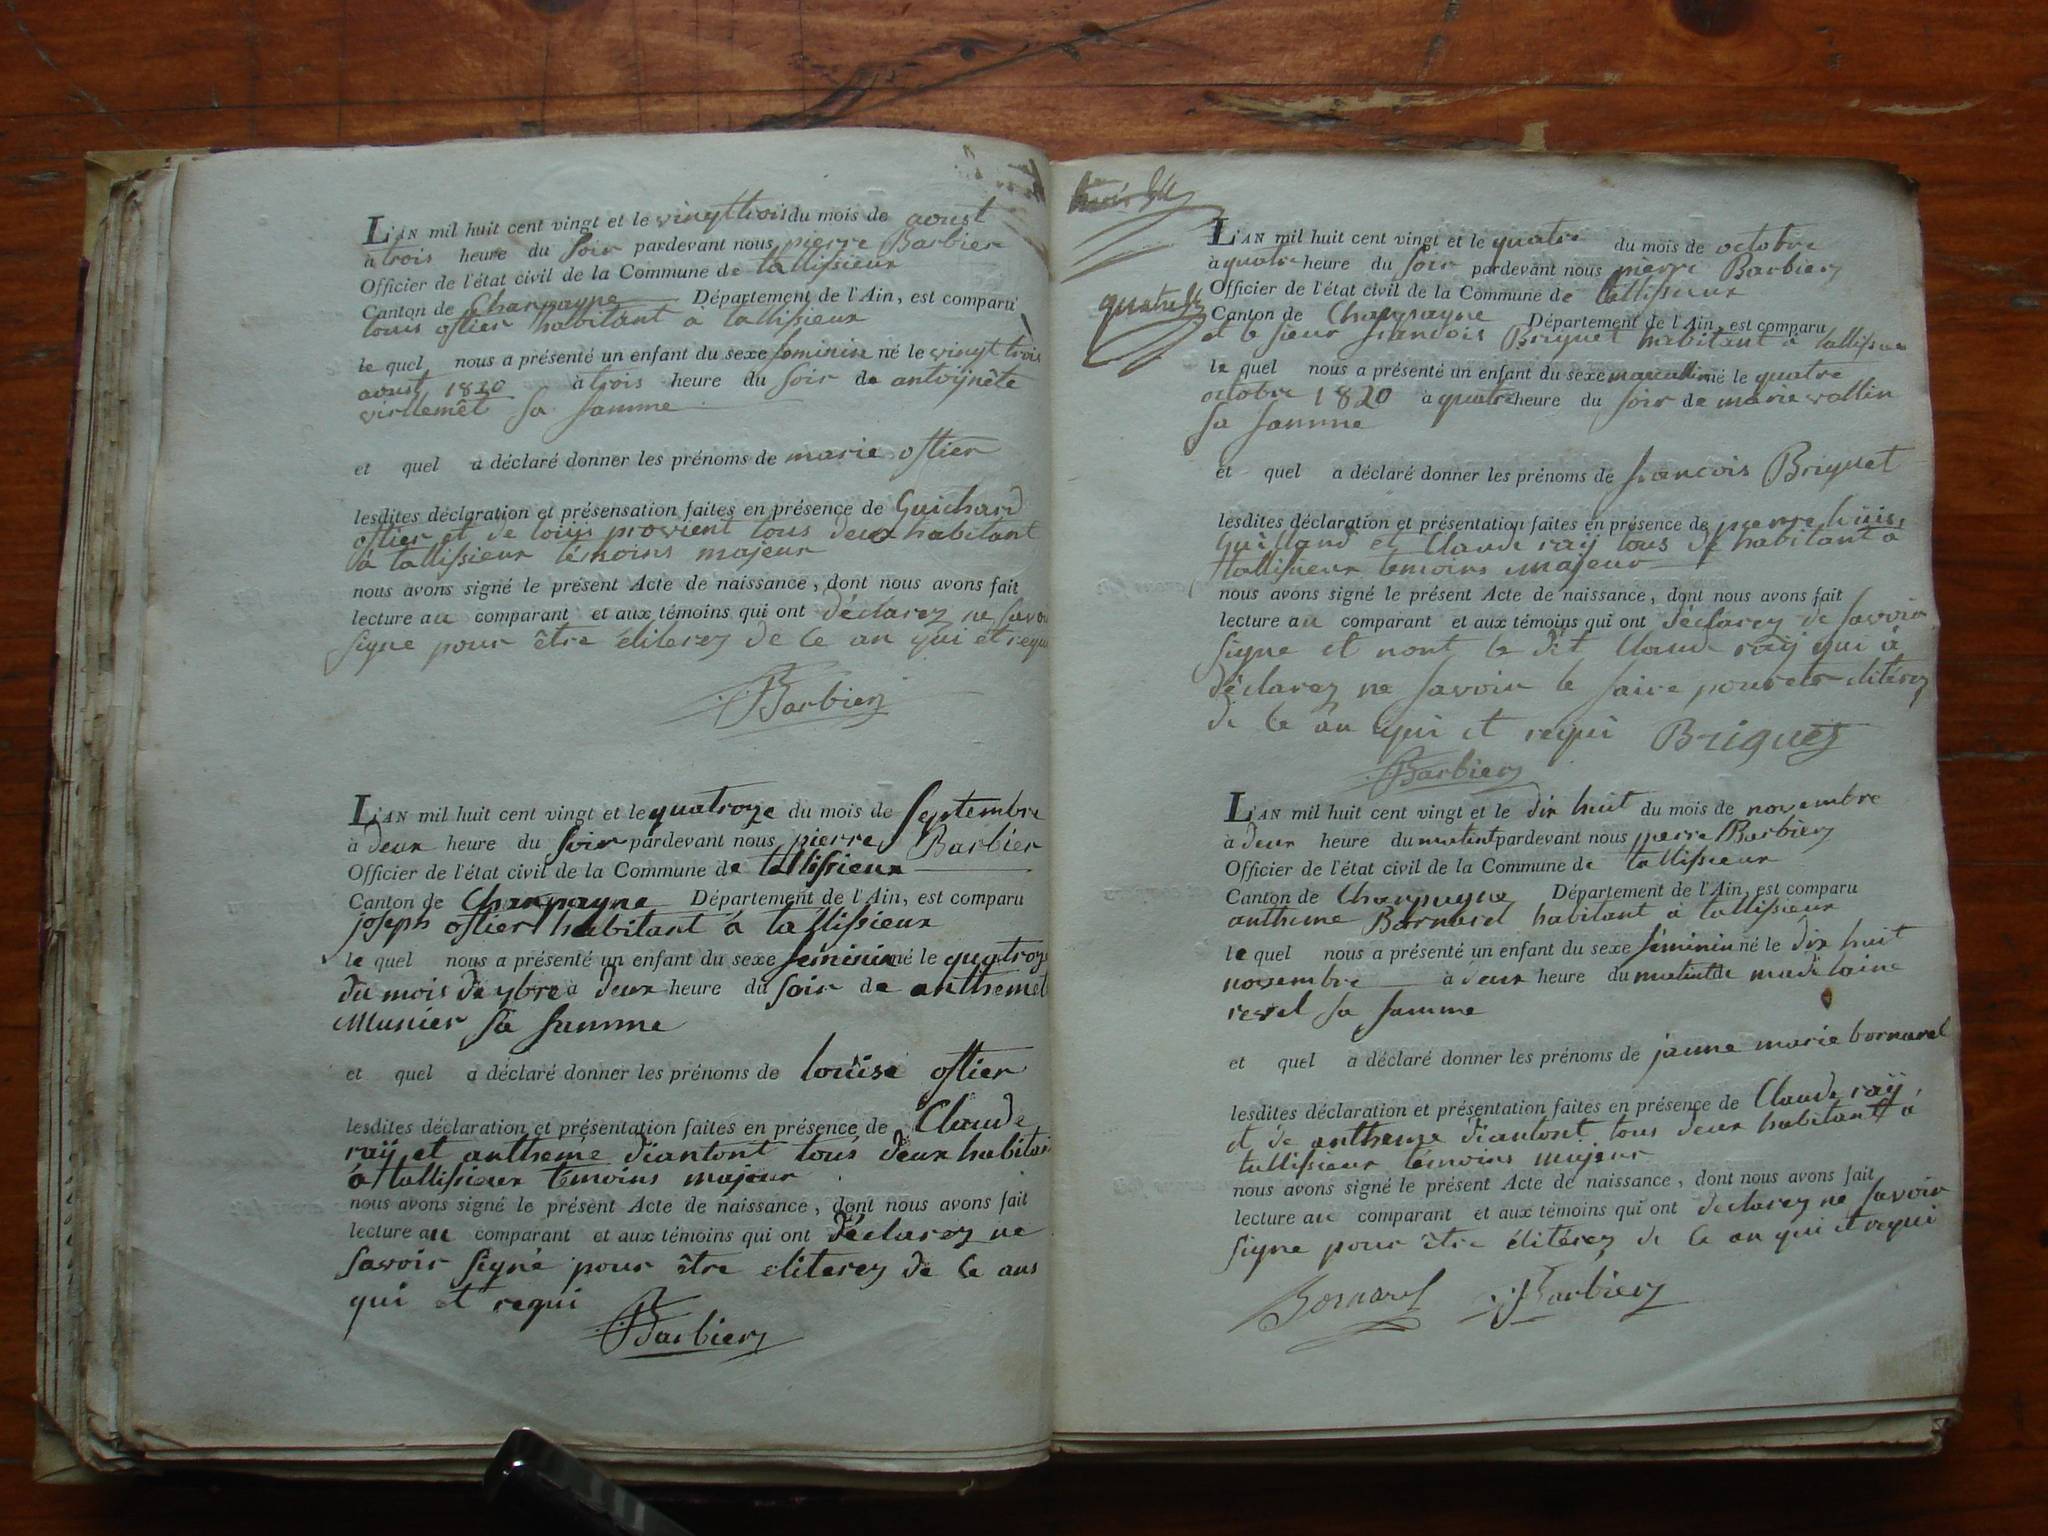 L'AN mil huit cent vingt et le vingt trois du mois de aoust
à trois heure du soir pardevant nous pierre Barbier
Officier de l'état civil de la Commune de tallissieux
Canton de Champagne Département de l'Ain, est comparu
louis ostier habitant à tallissieux
le quel nous a présenté un enfant du sexe feminin né le vingt trois
aoust 1820 à trois heure du soir de antoijnéte
sa famme
et quel a déclaré donner les prénoms de marie ostier
lesdites déclaration et présensation faites en présence de Guichard
ostier et de louis provient tous deux habitant
à tallissieux témoins majeur
nous avons signé le présent Acte de naissance, dont nous avons fait
lecture au comparant et aux témoins qui ont déclarez ne savoi
signe pour être éliterez de ce an qui et requ
Barbier
L'AN mil huit cent vingt et le quatroze du mois de septembre
à deux heure du soir pardevant nous pierre Barbier
Officier de l'état civil de la Commune de tallissieux
Canton de Champagne Département de l'Ain, est comparu
joseph ostier habitant à tallissieux
le quel nous a présenté un enfant du sexe féminin né le quatroze
du mois de 7bre à deux heure du soir de anthemet
Munier sa famme
et quel a déclaré donner les prénoms de louise ostier
lesdites déclaration et présentation faites en présence de Claude
raÿ et antheme diantont tous deux habitan
à tallissieux témoins majeur
nous avons signé le présent Acte de naissance, dont nous avons fait
lecture au comparant et aux témoins qui ont déclarez ne
savoir signé pour être eliterez de ce ans
qui et requi
Barbier
L'AN mil huit cent vingt et le quatre du mois de octobre
à quatre heure du soir pardevant nous pierre Barbier
Officier de l'état civil de la Commune de tallissieux
Canton de Champagne Département de l'Ain, est comparu
et le sieur francois Briquet habitant à tallissieu
le quel nous a présenté un enfant du sexe masculin né le quatre
octobre 1820 à quatre heure du soir de marie vallin
sa famme
et quel a déclaré donner les prénoms de francois Briquet
lesdites déclaration et présentation faites en présence de pierre
et Claude raÿ tous de habitant à
tallissieux temoins majeur
nous avons signé le présent Acte de naissance, dont nous avons fait
lecture au comparant et aux témoins qui ont déclarez de savoir
signe et nont le dit Claude raÿ qui à
déclarez ne savoir le faire pour etre elitérez
de ce an qui et requi Briquet
Barbier
L'AN mil huit cent vingt et le dix huit du mois de novembre
à deux heure du matint pardevant nous pierre Barbier
Officier de l'état civil de la Commune de tallissieux
Canton de Champagne Département de l'Ain, est comparu
antheme Bornarel habitant à tallissieux
le quel nous a présenté un enfant du sexe féminin né le dix huit
novembre à deux heure du matint de madelaine
revel sa famme
et quel a déclaré donner les prénoms de janne marie bornarel
lesdites déclaration et présentation faites en présence de Claude raÿ
et de antheme diantont tous deux habitant à
tallissieux témoins majeur
nous avons signé le présent Acte de naissance, dont nous avons fait
lecture au comparant et aux témoins qui ont declarez ne savoir
signe pour être élitérez de ce an qui et requi
Bornarel Barbier